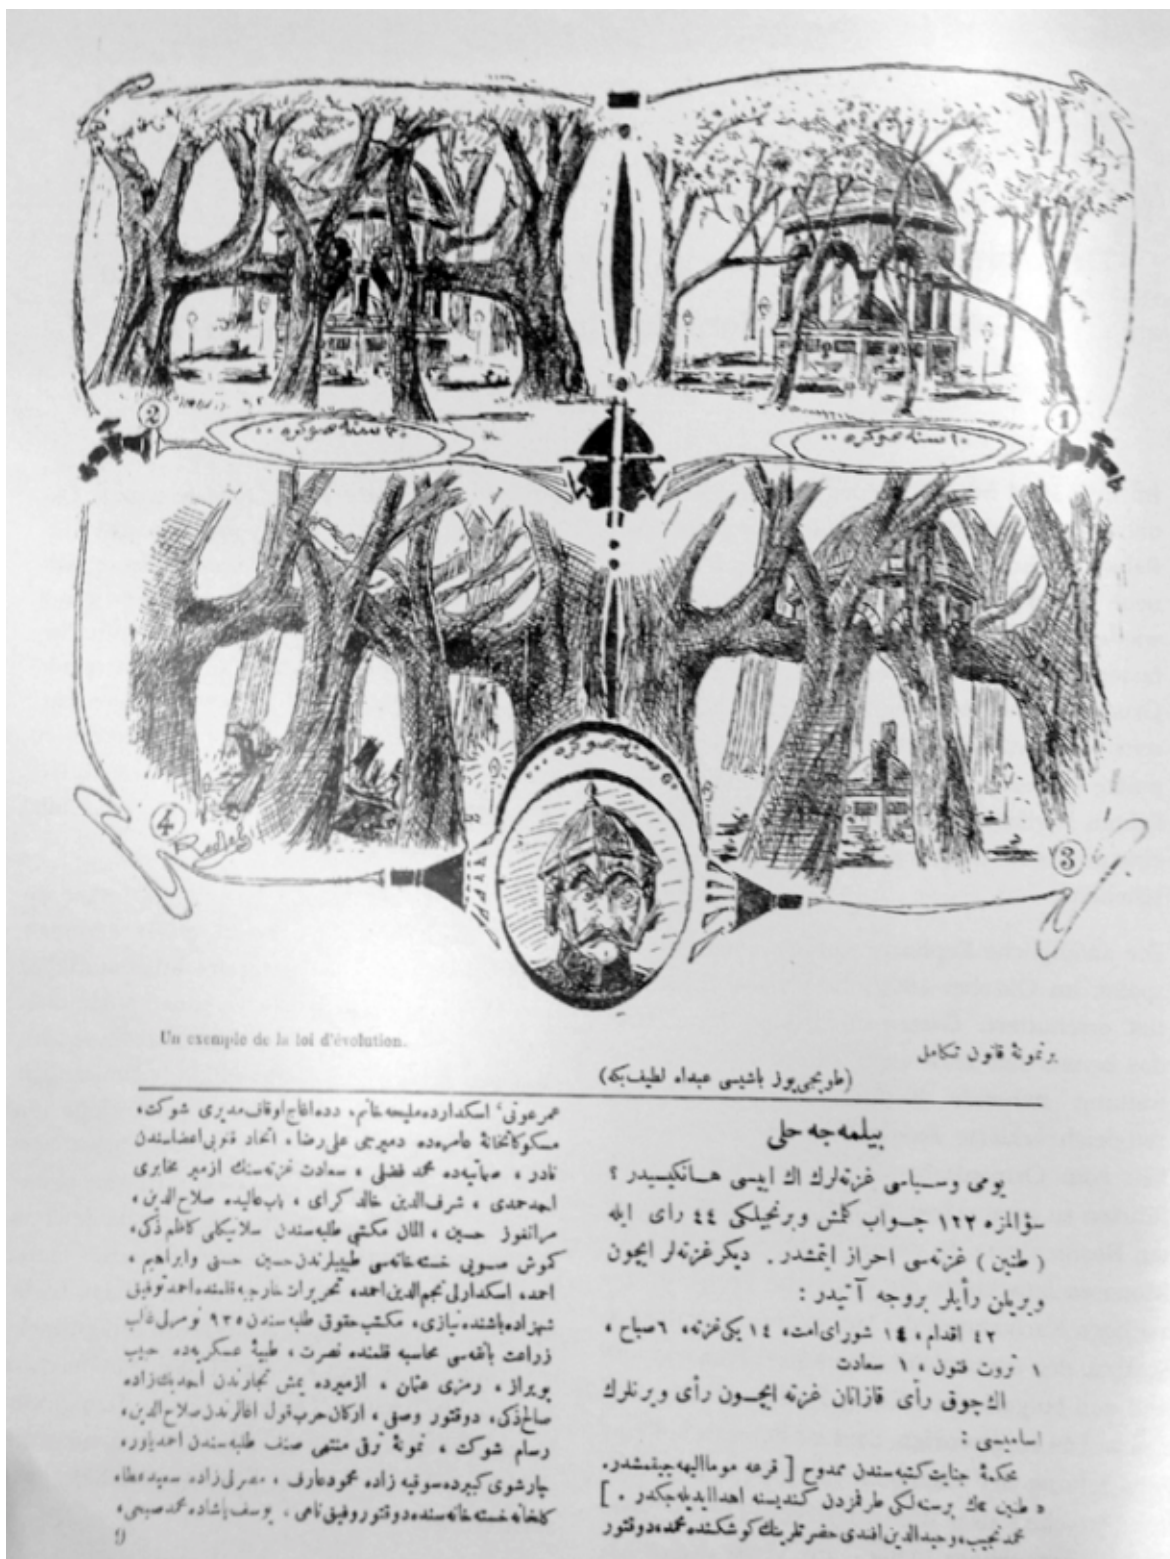 ١
١٠ سنه صوکره ..
٢
سنه صوکره ..
٣
٤
سنه صوکره ...
Un exemple de la loi d'évolution.
بر نمونۀ قانون تکامل
(طاونجی یوز باشیسی عبداء لطیف بکه)
بیلمه جه حلی
یومی و سیاسی غزته لرك اك اییسی هانکیسیدر ؟
سؤالمزه ١٢٢ جواب کلمش و برنجیلکی ٤٤ رای ایله
( طنین ) غزته سی احراز ایتمشدر . دیکر غزته لر ایچون
ویریلن رأیلر بروجه آتیدر :
٤٢ اقدام ، ١٤ شورای امت ، ١٤ یکی غزته ، ٦ صباح ،
١ ثروت فنون ، ١ سعادت
اك چوق رأی قازانان غزته ایچون رأی ویرنلرك
اسامیسی :
محکمۀ جنایت کتبه سندن ممدوح [ قرعه موما الیهه چیقمشدر .
طنین ك برسنه لکی طرفمزدن کندیسنه اهدا ایدیله جکدر . ]
محمد نجیب ، وحیدالدین افندی حضرتلرینك کوشکنده محمد ، دوقتور
عمر عونی ، اسکدارده ملیحه خانم ، دده اغاج اوقاف مدیری شوکت ،
مسکوکاتخانۀ عامره ده دمیرجی علی رضا ، اتحاد قلوبی اعضاسندن
نادر ، صماتیه ده محمد فضلی ، سعادت غزته سنك ازمیر مخابری
احمد حمدی ، شرف الدین خالد کرای ، باب عالیده صلاح الدین ،
حسین ، المان مکتبی طلبه سندن سلانیکلی کاظم ذکی ،
کموش صویی خسته خانه سی طبیبلرندن حسین حسنی و ابراهیم ،
احمد ، اسکدارلی نجم الدین احمد ، تحریرات خارجیه قلمنده احمد توفیق
شهزاده باشنده نیازی ، مکتب حقوق طلبه سندن ٩٣٥ نومرولی غالب
زراعت بانقه سی محاسبه قلمنده نصرت ، طبیۀ عسکریه ده حبیب
پویراز ، رمزی عثمان ، ازمیرده یمش تجارندن احمد بك زاده
صالح ذکی ، دوقتور وصفی ، ارکان حرب قول اغالرندن صلاح الدین ،
رسام شوکت ، نمونۀ ترقی منتهی صنف طلبه سندن احمد یاور ،
چارشوی کبیرده سوقیه زاده محمود عارف ، مصرلی زاده سعید عطا ،
کلخانه خسته خانه سنده دوقتور وفیق نامی ، یوسف پاشاده محمد صبحی ،
9